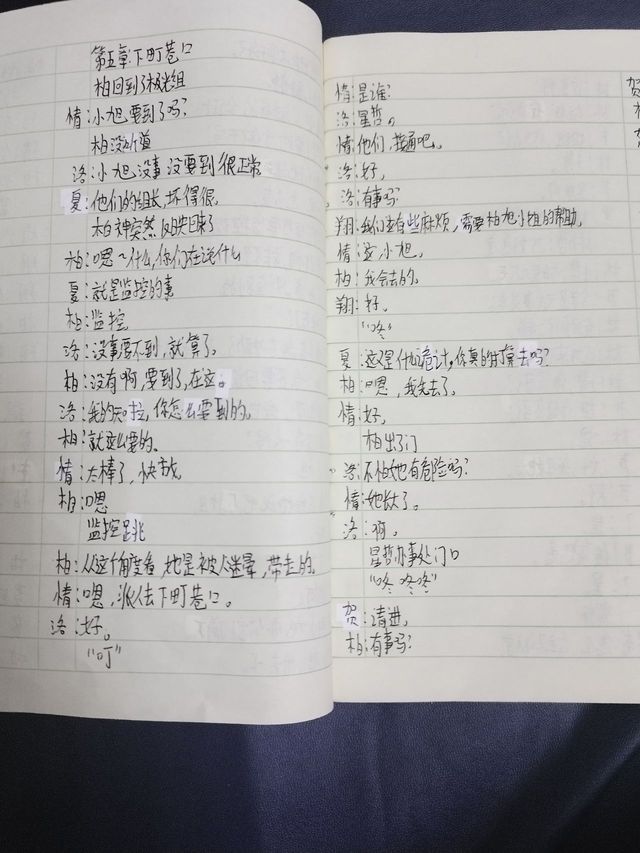 第五章:下町巷口
柏回到了极光组
情:小旭,要到了吗?
柏没知道
洛:小旭,没事没要到很正常
夏:他们的组长,坏得很,
柏神突然反映回来了
柏:嗯~什么,你们在说什么
夏:就是监控的事
柏:监控
洛:没事要不到,就算了。
柏:没有啊,要到了,在这。
洛:我的知 拉,你怎么要到的。
柏:就这么要的。
情:太棒了,快放
柏:嗯
监控跳
柏:从这个角度看,她是被人迷晕,带走的。
情:嗯,派人去下町巷口。
洛:好。
“叮”
情:是谁?
洛:星哲。
情:他们,接通吧。
洛:好,
洛:有事吗?
翔:我们这有些麻烦,需要柏旭小组的帮助。
情:这,小旭。
柏:我会去的。
翔:好。
“咚”
夏:这又是什么诡计,你真的打算去吗?
柏:嗯,我先去了。
情:好,
柏出了门
洛:不怕他有危险吗?
情:她长大了。
洛:啊。
星哲办事处门口
“咚 咚咚”
贺:请进。
柏:有事吗?
贺